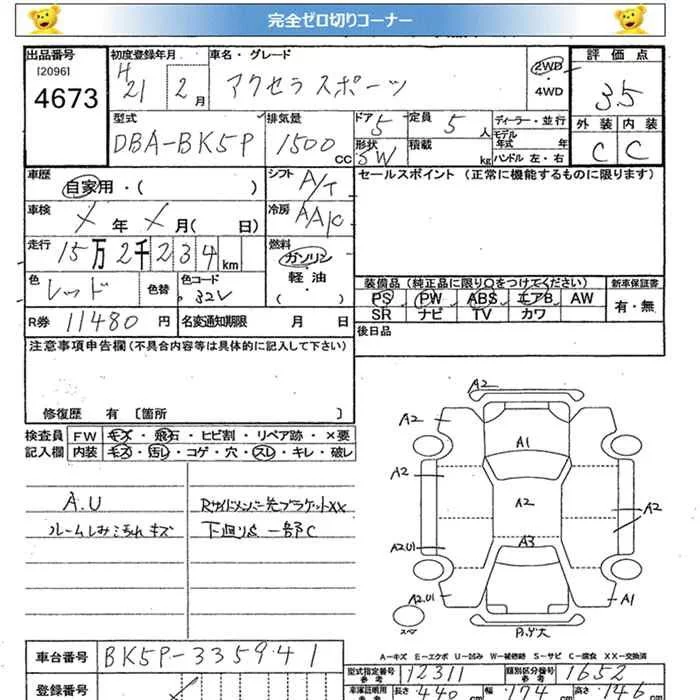 完全ゼロ切りコーナー
出品番号 初度登録年月 車名・グレード 評価点
[2096] H アクセラスポーツ 2WD・4WD 3.5
4673 21 2月 外装 内装
型式 排気量 ドア 定員 ディーラー・並行 C C
DBA-BK5P 1500cc 5 5人 モデル年式 年
形状 SW 積載 kg ハンドル 左・右
車歴 シフト セールスポイント (正常に機能するものに限ります)
自家用・( ) A/T
車検 冷房
X年X月( 日) AAC
走行 燃料
15万2千234km ガソリン
色 色替 色コード 軽油 装備品(純正品に限り○をつけてください) 新車保証書
レッド 32V ( ) PS PW ABS エアB AW 有・無
SR ナビ TV カワ
R券 11480円 名変通知期限 月 日 後日品
注意事項申告欄(不具合内容等は具体的に記入して下さい)
修復歴 有 [箇所 ]
検査員 FW キズ・飛石・ヒビ割・リペア跡・×要
記入欄 内装 キズ・汚レ・コゲ・穴・スレ・キレ・破レ
A.U Rサイドメンバー先ブラケットXX
ルームしみこすれキズ 下回り 一部C
A2
A2
A1
A2 A2 A2
A2U1 A3
A2.U1 A1
スペ
A-キズ E-エクボ U-凹み W-補修跡 S-サビ C-腐食 XX-交換済
車台番号 BK5P-335941 型式指定番号 12311 類別区分番号 1652
参考 参考
登録番号 車庫証明用 長さ 448cm 幅 174cm 高さ 146cm